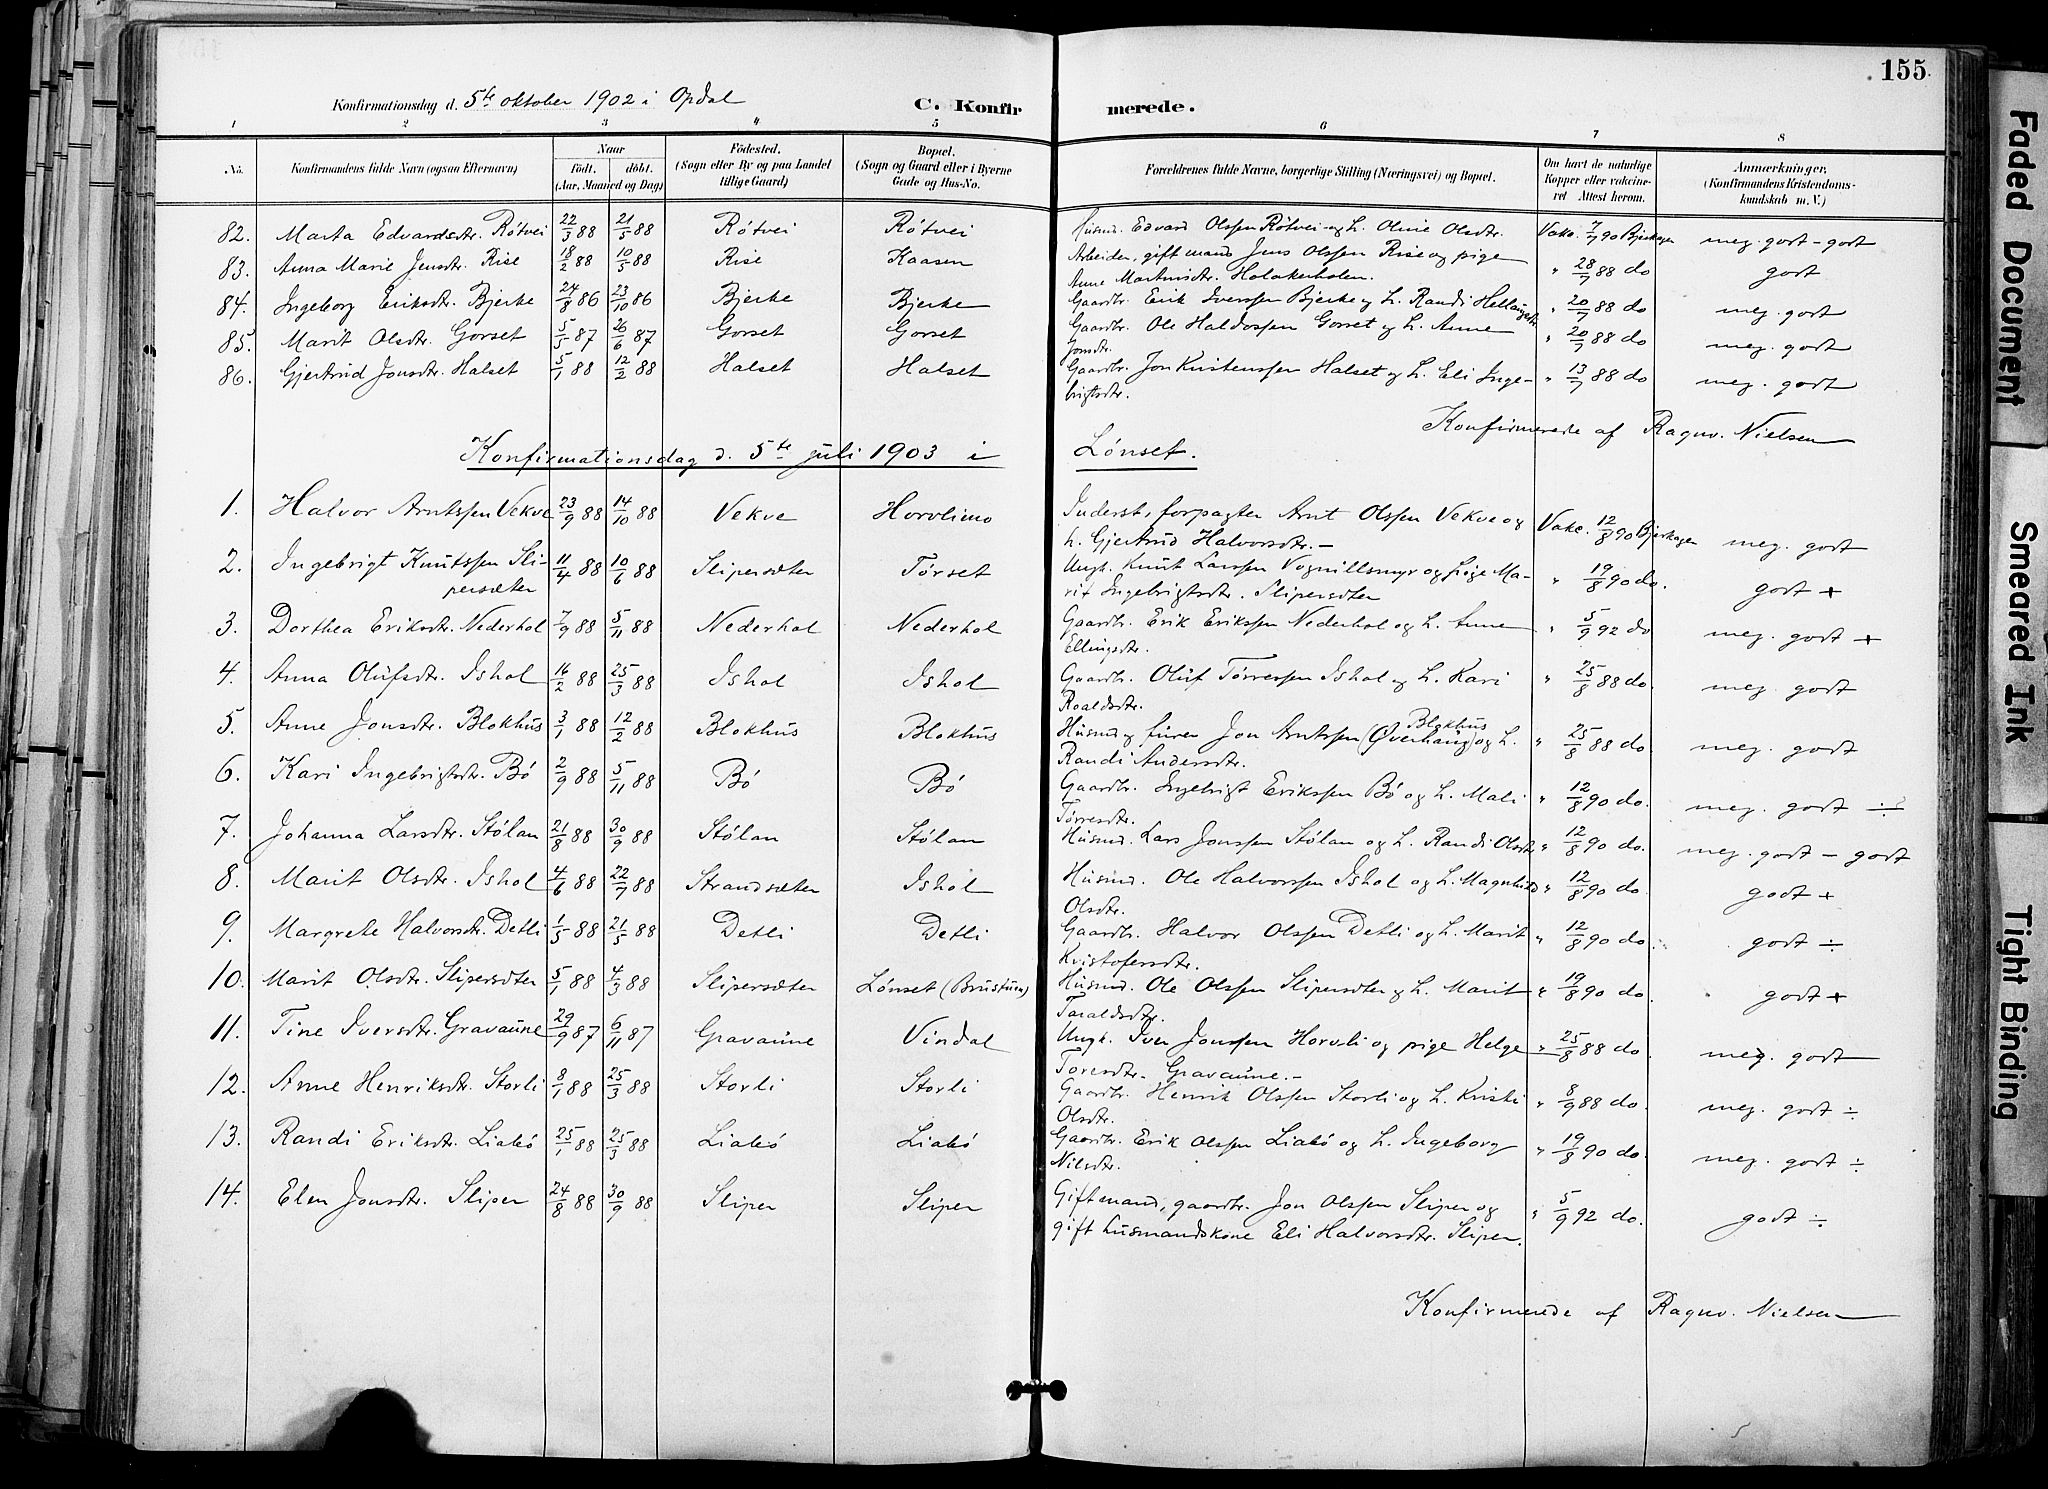 155
Konfirmationsdag d. 5te oktober 1902 i Opdal C. Konfirmerede.
1 2 3 4 5 6 7 8
No. Konfirmandens fulde Navn (ogsaa Efternavn) Naar født. døbt. (Aar, Maaned og Dag) Födested. (Sogn eller By og paa Landet tillige Gaard) Bopæl. (Sogn og Gaard eller i Byerne Gade og Hus-No. Forældrenes fulde Navne, borgerlige Stilling (Næringsvei) og Bopæl. Om havt de naturlige Kopper eller vaccineret Attest herom. Anmærkninger, (Konfirmandens Kristendomskundskab m. V.)
82. Marta Edvardsdtr. Røtvei 22/3 88 21/5 88 Røtvei Røtvei Husmd. Edvard Olssen Røtvei og h. Oline Olsdtr. Vakc. 7/7 90 Bjerkagen meg. godt - godt
83. Anna Marie Jensdtr. Rise 18/2 88 10/5 88 Rise Kaasen Arbeider, gift mand Jens Olssen Rise og pige " 28/7 88 do godt
Anne Martinsdtr. Holakerholen.
84. Ingeborg Eriksdtr. Bjerke 24/8 86 23/10 86 Bjerke Bjerke Gaardbr. Erik Iverssen Bjerke og h. Randi Hellaugsdtr. " 20/7 88 do meg. godt
85. Marit Olsdtr. Gorset 5/5 87 26/6 87 Gorset Gorset Gaardbr. Ole Haldossen Gorset og h. Anne " 20/7 88 do meg. godt
Jonsdtr.
86. Gjertrud Jonsdtr. Halset 5/1 88 12/2 88 Halset Halset Gaardbr. Jon Kristenssen Halset og h. Eli Inge- " 13/7 88 do meg. godt
brigtsdtr.
Konfirmerede af Ragnv. Nielsen
Konfirmationsdag d. 5te juli 1903 i Lønset.
1. Halvor Arntssen Vekve 23/9 88 14/10 88 Vekve Horvlimo Inderst, forpagter Arnt Olssen Vekve og Vakc. 12/8 90 Bjerkagen meg. godt
h. Gjertrud Halvorsdtr. -
2. Ingebrigt Knutssen Sli- 11/4 88 10/6 88 Slipersæter Tørset Ungk. Knut Larssen Vognillsmyr og pige Ma- " 19/8 90 do. godt +
persæter rit Ingebrigtsdtr. Slipersæter
3. Dorthea Eriksdtr. Nederhol 7/9 88 5/11 88 Nederhol Nederhol Gaardbr. Erik Erikssen Nederhol og h. Anne " 5/9 92 do meg. godt +
Ellingsdtr.
4. Anna Olufsdtr. Ishol 16/2 88 25/3 88 Ishol Ishol Gaardbr. Oluf Tørressen Ishol og h. Kari " 25/8 88 do. meg. godt
Roaldsdtr.
5. Anne Jonsdtr. Blokhus 3/1 88 12/2 88 Blokhus Blokhus Husmd og furer Jon Arntssen Blokhus (Øverhaug) og h. " 25/8 88 do. meg. godt
Randi Andersdtr.
6. Kari Ingebrigtsdtr. Bø 2/9 88 5/11 88 Bø Bø Gaardbr. Ingebrigt Erikssen Bø og h. Mali " 12/8 90 do. meg. godt ÷
Tørresdtr.
7. Johanna Larsdtr. Stølan 21/8 88 30/9 88 Stølan Stølan Husmd. Lars Jonssen Stølan og h. Randi Olsdtr. " 12/8 90 do. meg. godt - godt
8. Marit Olsdtr. Ishol 4/6 88 22/7 88 Strandsæter Ishol Husmd. Ole Halvorssen Ishol og h. Magnhild " 12/8 90 do. godt +
Olsdtr.
9. Margrete Halvorsdtr. Detli 1/5 88 21/5 88 Detli Detli Gaardbr. Halvor Olssen Detli og h. Marit " 12/8 90 do. godt ÷
Kristofersdtr.
10. Marit Olsdtr. Slipersæter 5/1 88 4/3 88 Slipersæter Lønset (Brustuen) Husmd. Ole Olssen Slipersæter og h. Marit " 19/8 90 do. godt +
Taraldsdtr.
11. Tine Iversdtr. Gravaune 29/9 87 6/11 87 Gravaune Vindal Ungk. Iver Jonssen Horvli og pige Helge " 25/8 88 do. meg. godt
Toresdtr. Gravaune. -
12. Anne Henriksdtr. Storli 8/1 88 25/3 88 Storli Storli Gaardbr. Henrik Olssen Storli og h. Kristi " 8/9 88 do. meg. godt ÷
Olsdtr.
13. Randi Eriksdtr. Liabø 25/1 88 25/3 88 Liabø Liabø Gaardbr. Erik Olssen Liabø og h. Ingeborg " 19/8 90 do. meg. godt ÷
Nilsdtr.
14. Elen Jonsdtr. Sliper 24/8 88 30/9 88 Sliper Sliper Gift mand, gaardbr. Jon Olssen Sliper og " 5/9 92 do. godt ÷
gift husmandskone Eli Halvorsdtr. Sliper.
Konfirmerede af Ragnv. Nielsen
Faded Document
Smeared Ink
Tight Binding